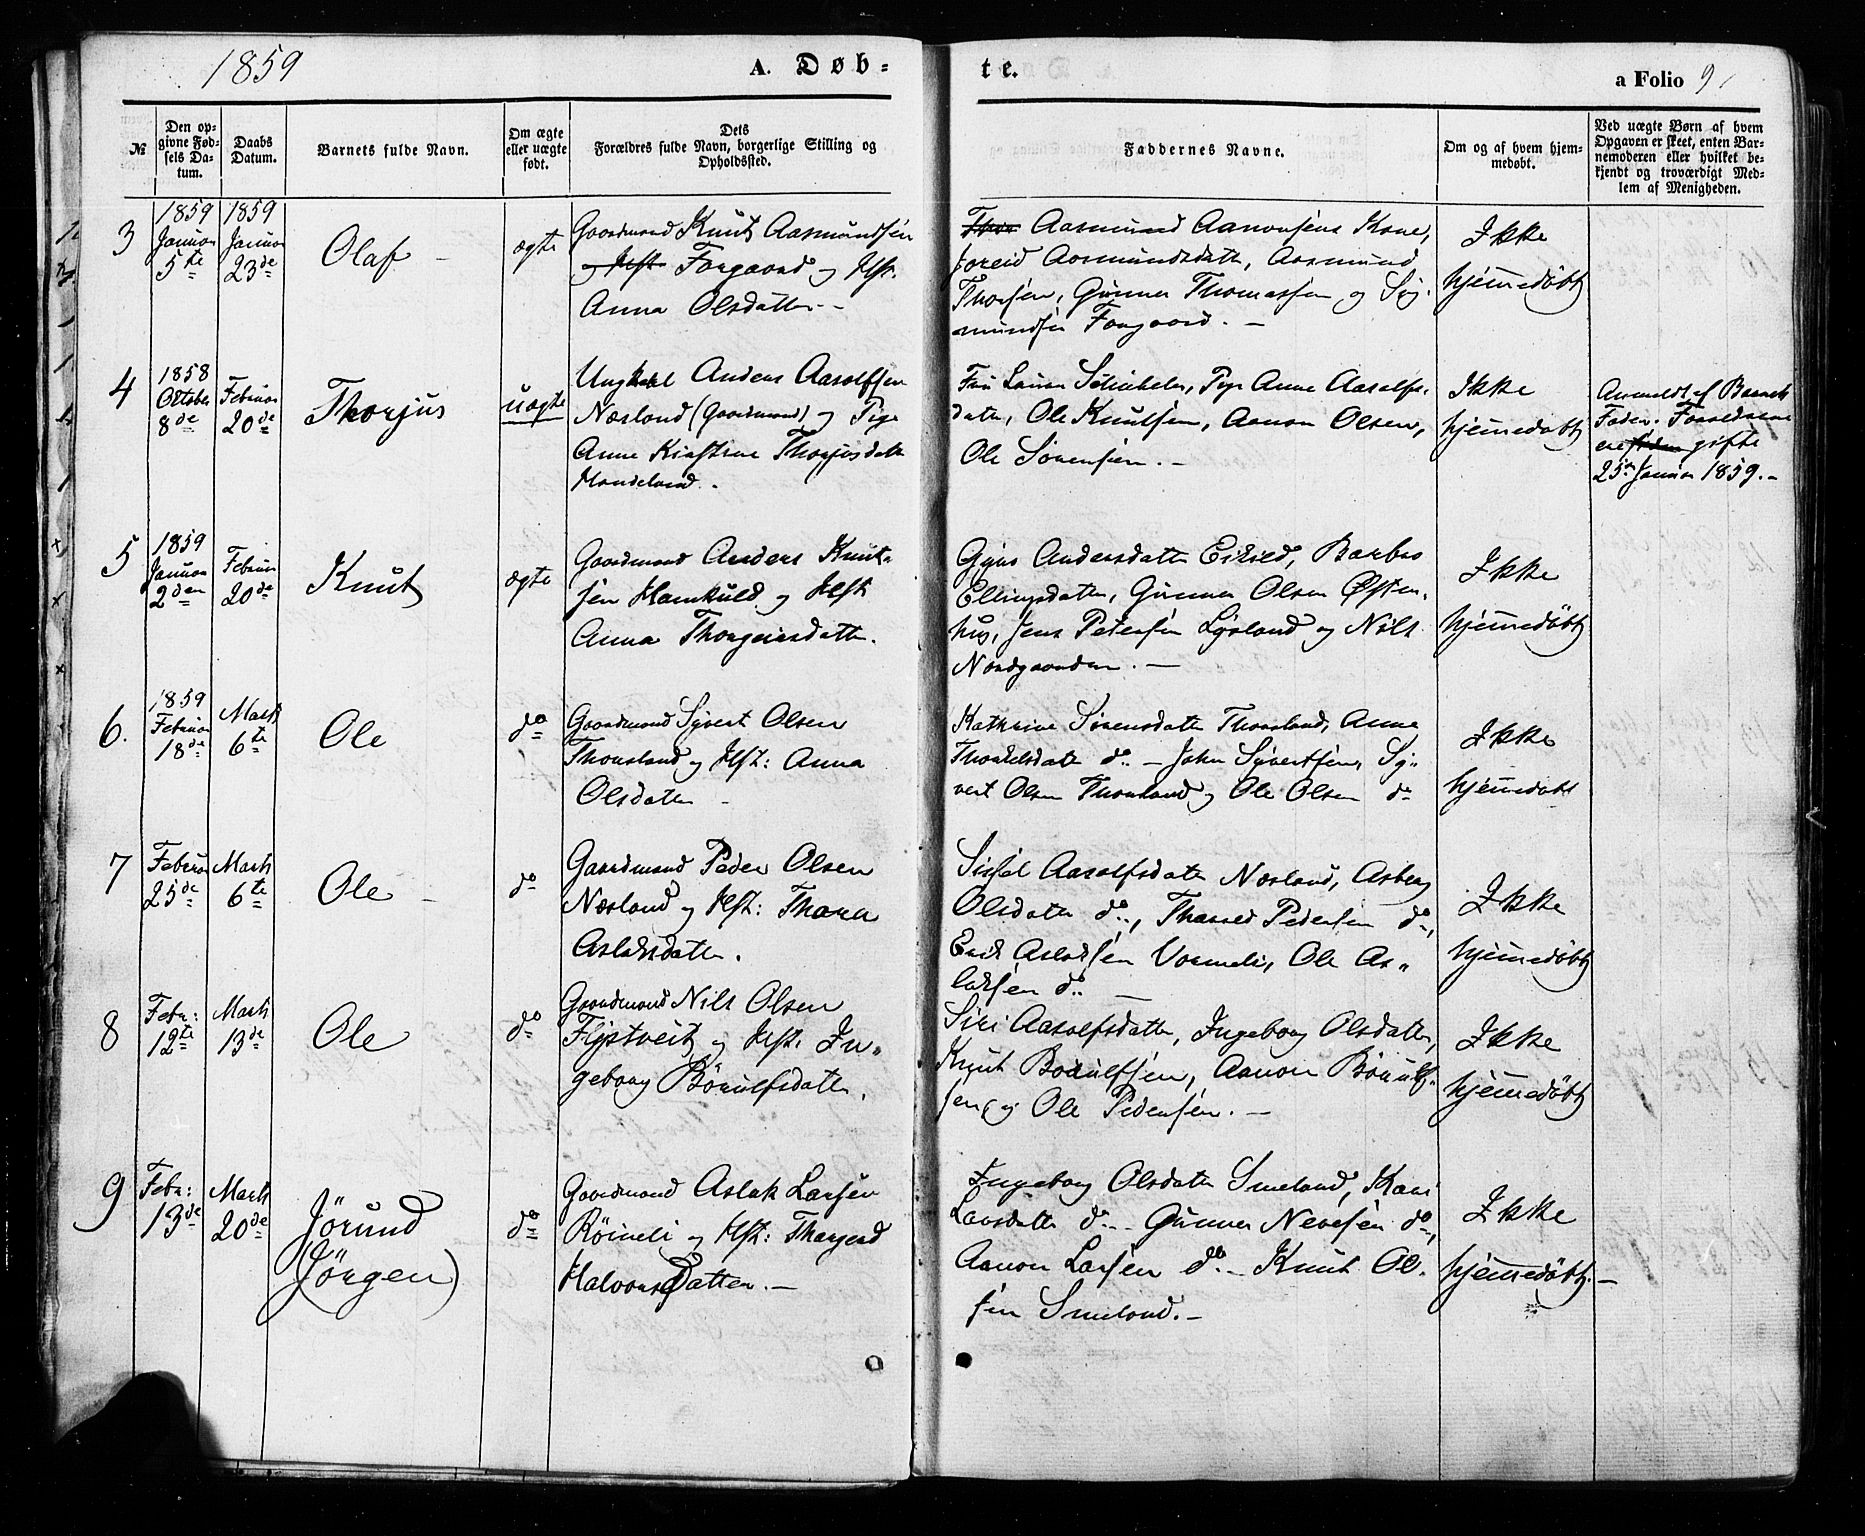 1859
A. Døb-
te.
a Folio 9
№
Den op-
givne Fød-
sels Da-
tum.
Daabs
Datum.
Barnets fulde Navn.
Om ægte
eller uægte
født.
Dets
Forældres fulde Navn, borgerlige Stilling og
Opholdssted.
Faddernes Navne.
Om og af hvem hjem-
medøbt.
Ved uægte Børn af hvem
Opgaven er skeet, enten Bar-
nemoderen eller hvilket be-
kjendt og troværdigt Med-
lem af Menigheden.
3
1859
Januar
5te
1859
Januar
23de
Olaf
ægte
Gaardmand Knut Aasmundsen
Forgaard og Hst.
Anna Olsdatter
Aasmund Aanonsens Kone,
Joreid Aasmundsdatter, Aasmund
Thorsen, Gunner Thomassen og Sig-
mundsen Forgaard.
Ikke
hjemmedøbt
4
1858
Oktober
8de
Februar
20de
Thorjus
uægte
Ungkarl Anders Aasolfsen
Næsland (Gaardmand) og Pige
Anne Kirstine Thorjusdatter
Mandeland.
Pige Anne Aasolfs-
datter, Ole Knutsen, Aanon Olsen,
Ole Sørensen.
Ikke
hjemmedøbt
Anmeldt af Barnets
Fader. Forældrene
ere gifte
25de Januar 1859.
5
1859
Januar
2den
Februar
20de
Knut
ægte
Gaardmand Anders Knut-
sen Hamkuld og Hst.
Anna Thorgeirsdatter.
Gyro Andersdatter Eikild, Barbro
Ellingsdatter, Gunner Olsen Østen-
hus, Jens Petersen Lysland og Nils
Nordgaarden.
Ikke
hjemmedøbt
6.
1859
Februar
18de
Marts
6te
Ole
do
Gaardmand Syvert Olsen
Thorsland og Hst: Anna
Olsdatter
Kathrine Sørensdatter Thorsland, Anne
do - John Syvertsen, Sy-
vert Olsen Thorsland og Ole Olsen do
Ikke
hjemmedøbt
7
Februar
25de
Marts
6te
Ole
do
Gaardmand Peder Olsen
Næsland og Hst: Thora
Aslaksdatter.
Sissel Aasolfsdatter Næsland, Asberg
Olsdatter do, Pedersen do,
Erik Aslaksen Vormeli, Ole As-
laksen do
Ikke
hjemmedøbt
8
Febr:
12te
Marts
13de
Ole
do
Gaardmand Nils Olsen
Flystveit og Hst. In-
geborg Börulfsdatter.
Siri Aasolfsdatter, Ingeborg Olsdatter,
Knut Börulfsen, Aanon Börulf-
sen, og Ole Pedersen.
Ikke
hjemmedøbt
9
Febr:
13de
Marts
20de
Jørund
(Jørgen)
do
Gaardmand Aslak Larsen
Röineli og Hst: Thorjerd
Halvorsdatter.
Ingeborg Olsdatter Smeland, Kari
Larsdatter do Gunner Nevesen do,
Aanon Larsen do - Knut Ol-
sen Smeland.
Ikke
hjemmedøbt.